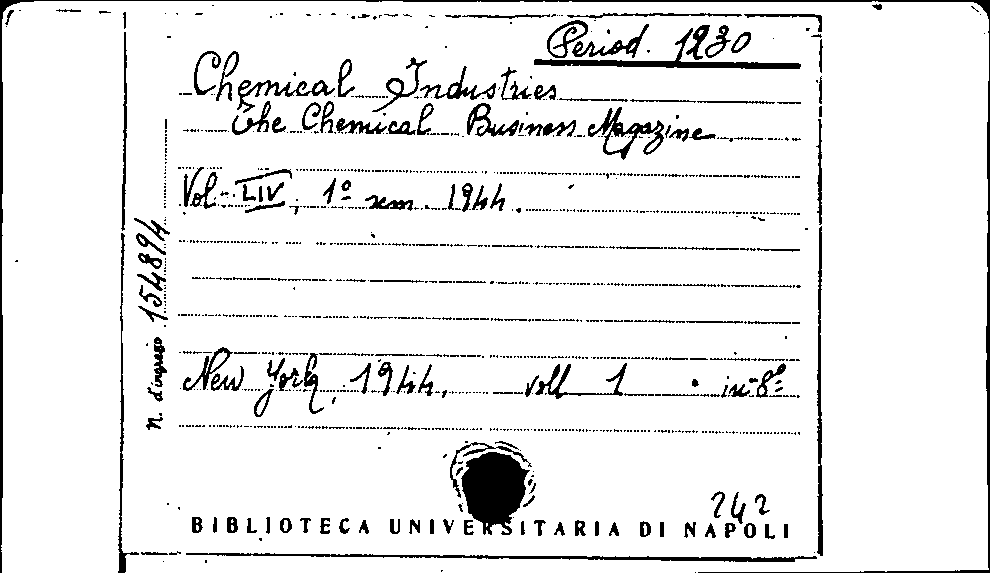 Period. 1230
Chemical Industries
The Chemical Business Magazine.
Vol. LIV, 1º sem. 1944.
N. d'ingresso 154894
New York, 1944. voll 1 . in-8º
242
BIBLIOTECA UNIVERSITARIA DI NAPOLI